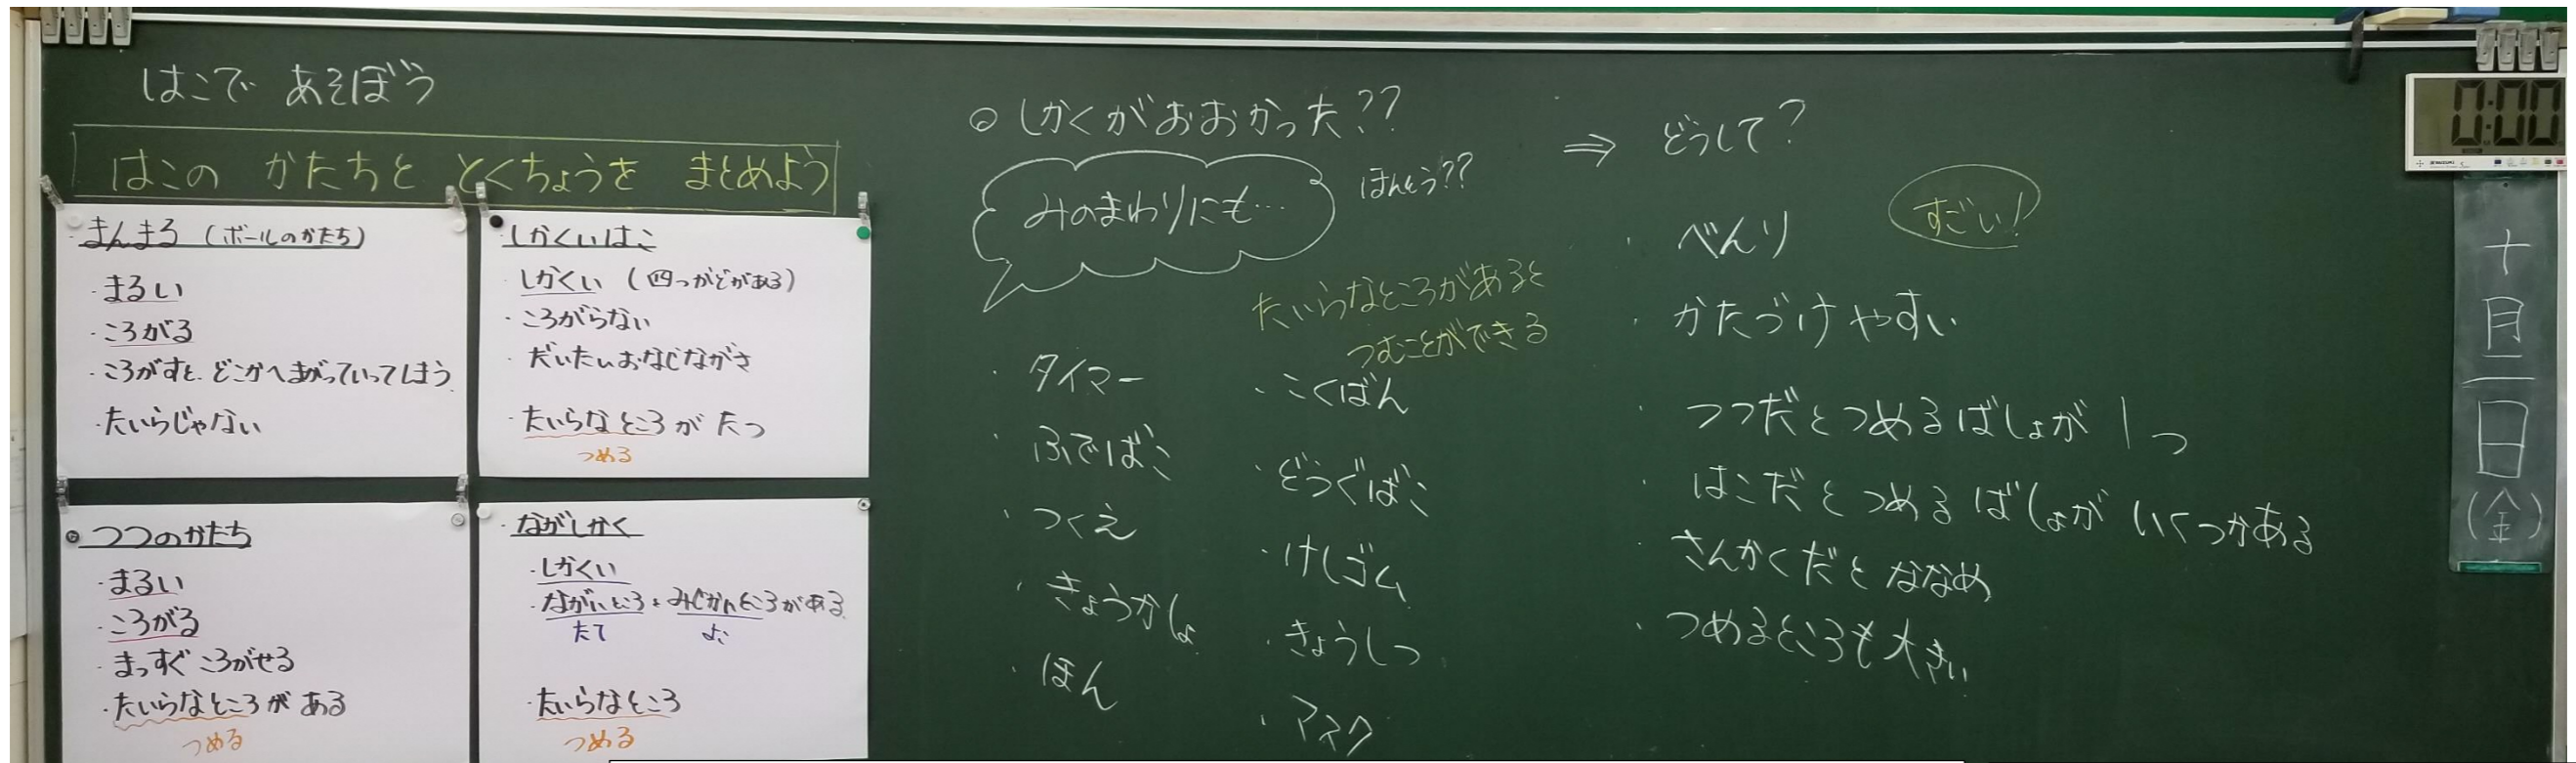 はこで あそぼう
はこの かたちと とくちょうを まとめよう
・まんまる (ボールのかたち)
・まるい
・ころがる
・ころがすと、どこかへまがっていってしまう
・たいらじゃない
・しかくいはこ
・しかくい (四つかどがある)
・ころがらない
・だいたいおなじながさ
・たいらなところが たつ
つめる
つつのかたち
・まるい
・ころがる
・まっすぐ ころがせる
・たいらなところが ある
つめる
・ながしかく
・しかくい
・ながいところとみじかいところがある
たて よこ
・たいらなところ
つめる
◎しかくがおおかった??
みのまわりにも…
ほんとう??
たいらなところがあると
つむことができる
・タイマー
・ふでばこ
・つくえ
・きょうかしょ
・ほん
・こくばん
・どうぐばこ
・けしゴム
・きょうしつ
・マスク
⇒ どうして?
すごい!
・べんり
・かたづけやすい
・つつだとつめるばしょが1つ
・はこだとつめるばしょがいくつかある
・さんかくだとななめ
・つめるところも大きい
0:00
十月一日(金)